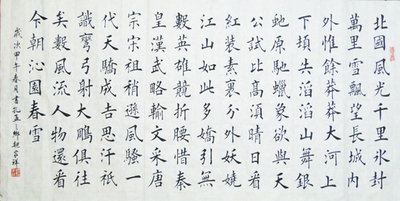 北國風光千里冰封
萬里雪飄望長城內
外惟餘莽莽大河上
下頓失滔滔山舞銀
虵原馳蠟象欲與天
公試比高須晴日看
紅裝素裹分外妖嬈
江山如此多嬌引無
數英雄競折腰惜秦
皇漢武略輸文采唐
宗宋祖稍遜風騷一
代天驕成吉思汗祇
識彎弓射大鵰俱往
矣數風流人物還看
今朝沁園春雪
歲次甲午春月書